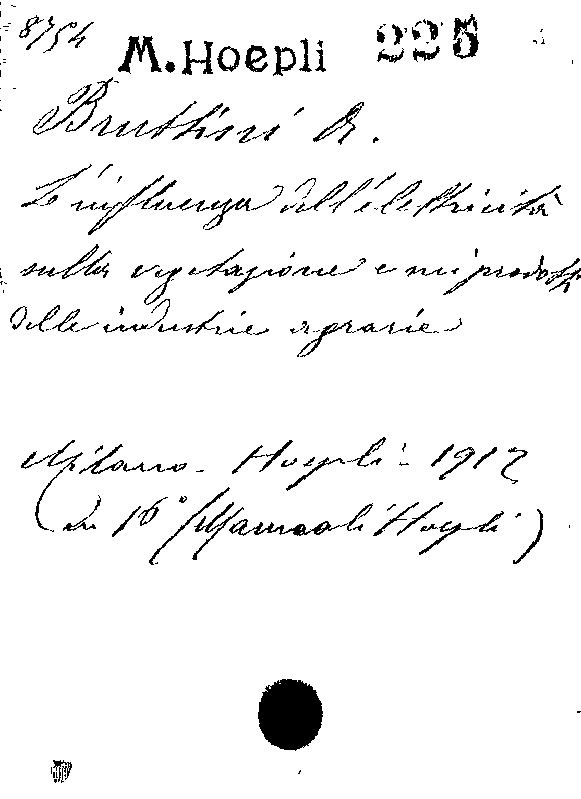 8754
M. Hoepli 225
Bruttini A.
L'influenza dell'elettricità
sulla vegetazione e nei prodotti
delle industrie agrarie
Milano - Hoepli - 1912
(in 16° Manuali Hoepli)